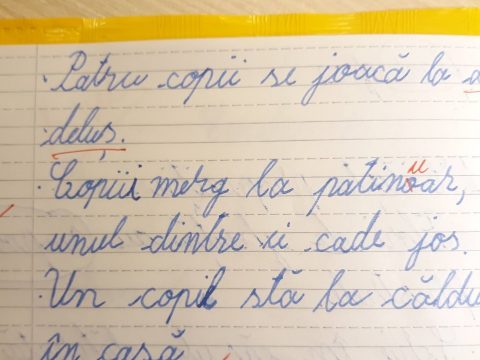 Patru copii se joacă la
deluș.
Copiii merg la patinoar,
unul dintre ei cade jos.
Un copil stă la căldu
în casă